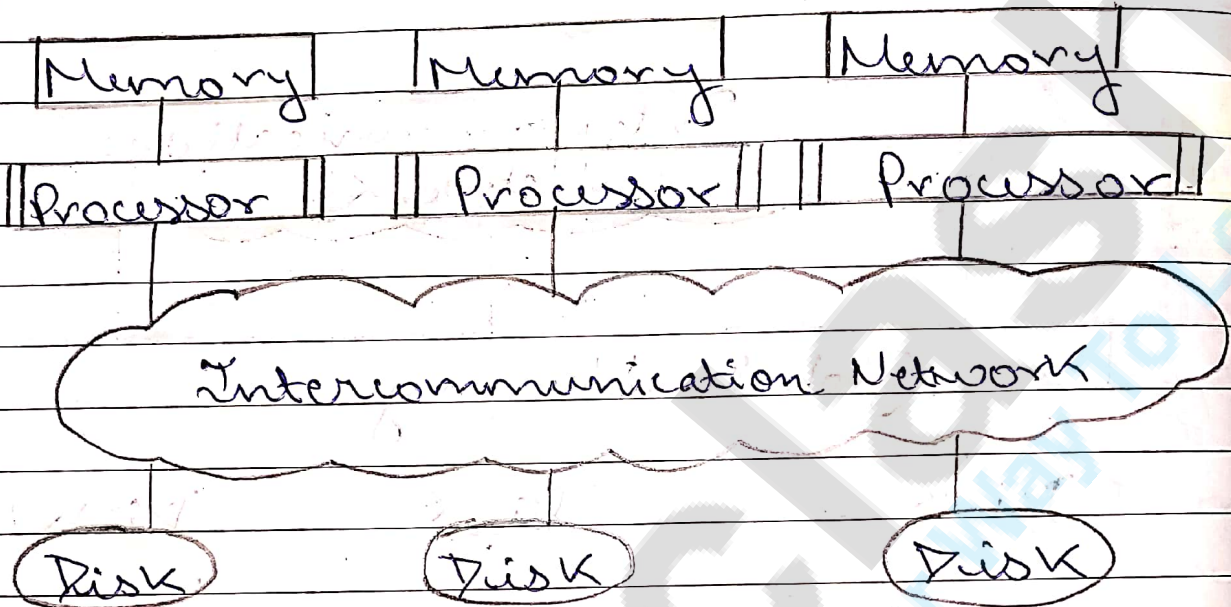 Memory Memory Memory
Processor Processor Processor
Intercommunication Network
Disk Disk Disk
Way To